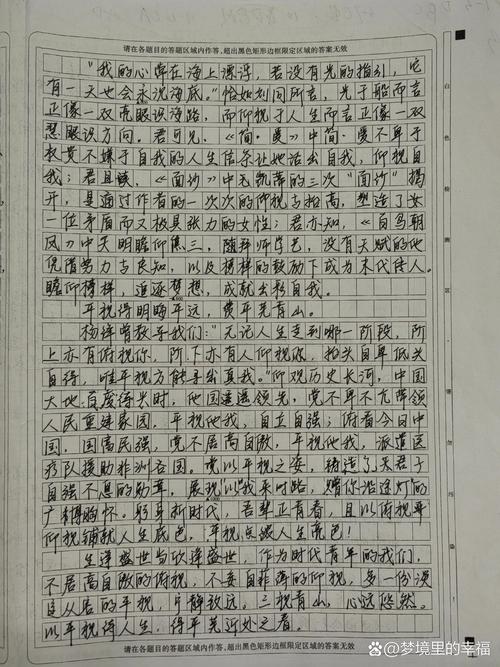 请在各题目的答题区域内作答，超出黑色矩形边框限定区域的答案无效
"我的心常在海上漂浮，若没有光的指引，它
有一天也会永沉海底。"恰如刘同所言，光于船而言
正像一双亮眼识海路，而仰视于人生而言正像一双
慧眼识方向。君可见，《简·爱》中简·爱不卑于
权贵不嫌于自我的人生信条让她活出自我，仰视自
我；君且读，《面纱》中凯蒂的三次"面纱"揭
开，是通过作者的一次次的仰视与拔高，塑造了女
一位矛盾而又极具张力的女性；君亦知，《百鸟朝
凤》中天明瞻仰焦三，随拜师学艺，没有天赋的他
凭借努力与良知，以及榜样的鼓励下成为末代传人。
瞻仰榜样，追逐梦想，成就出彩自我。
平视得明晦平远，览平芜青山。
杨绛曾教导我们："无论人生走到哪一阶段，阶
上亦有俯视你，阶下亦有人仰视你，抬头自卑低头
自得，唯平视方能寻出真我。"仰观历史长河，中国
大地 时，他国遥遥领先，党不卑不亢带领
人民重建家园，平视他我，自立自强；俯看今日中
国，国富民强，党不居高自傲，平视他我，派遣医
疗队援助非洲各国。党以平视之姿，铸造了天君子
自强不息的勋章，展现以"我来时路，赠你沿途灯"的
广博胸怀。躬身新时代，吾辈正青春，且以俯视平
仰视铺就人生底色，平视点缀人生亮色！
生逢盛世与欣逢盛世，作为时代青年的我们，
不居高自傲的俯视，不妄自菲薄的仰视，多一份淡
定从容的平视，宁静致远。三视青山，心远悠然。
以平视待人生，得平芜近处之春。
请在各题目的答题区域内作答，超出黑色矩形边框限定区域的答案无效
头条 @梦境里的幸福